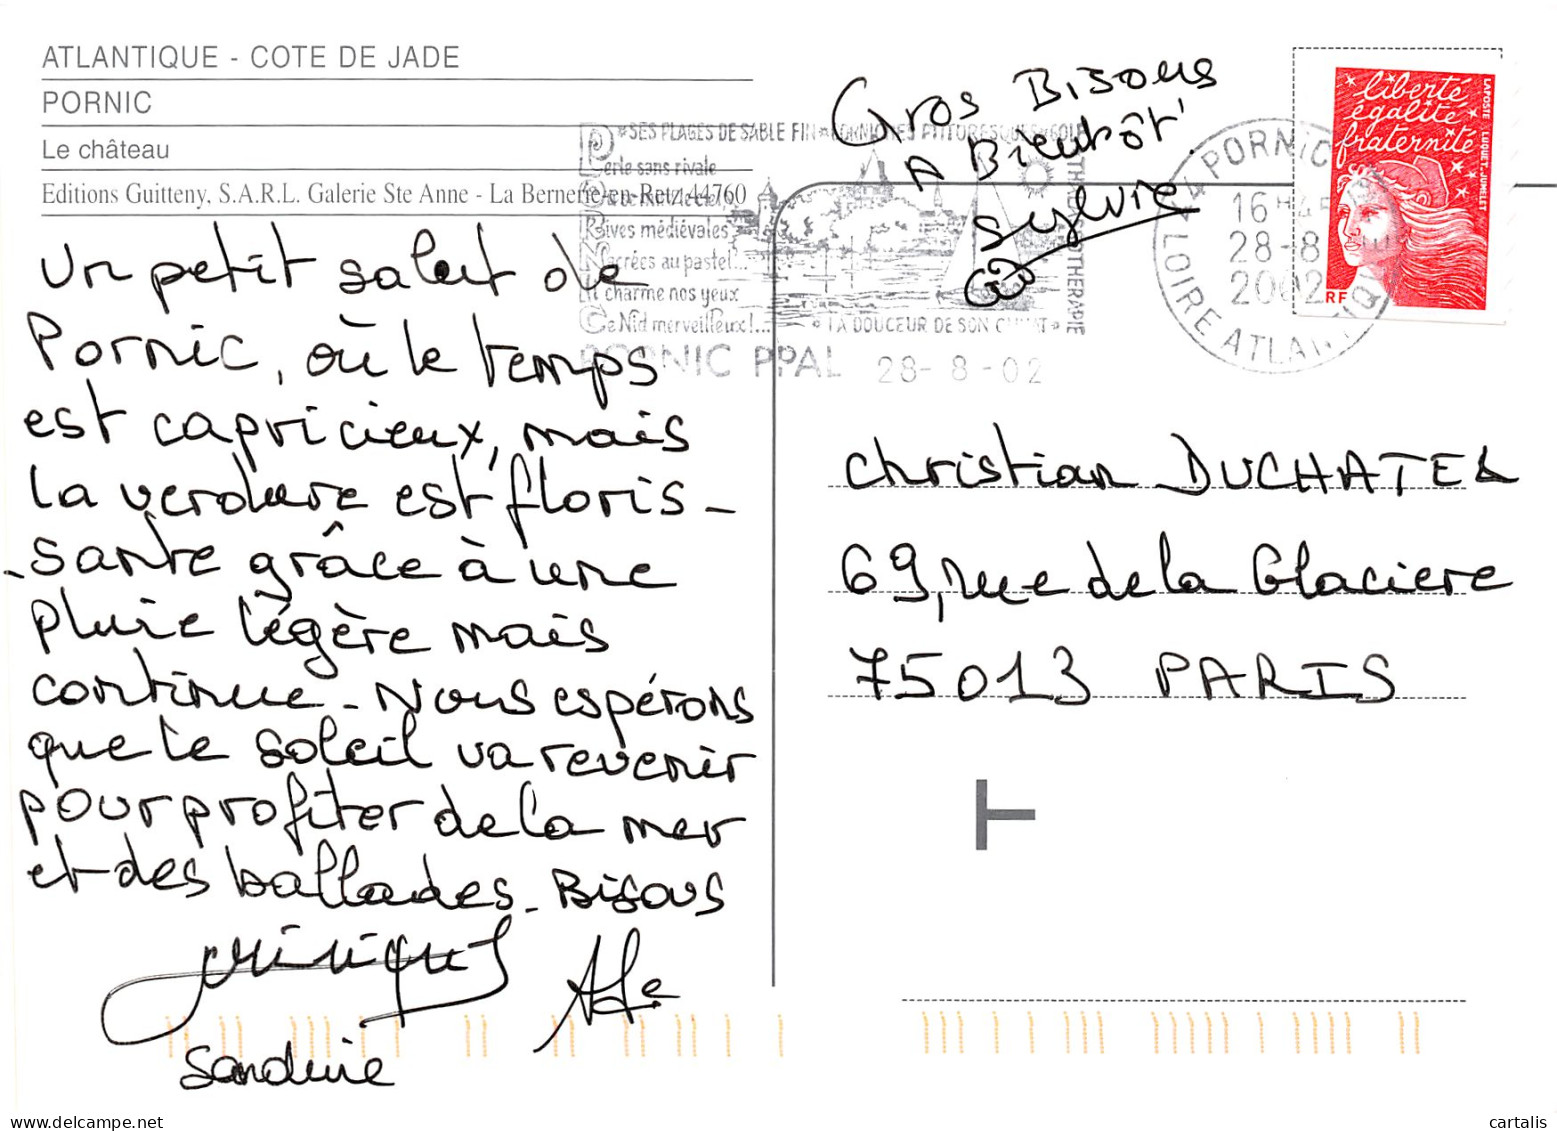 ATLANTIQUE - COTE DE JADE
PORNIC
Le château
Editions Guitteny, S.A.R.L. Galerie Ste Anne - La Bernerie-en-Retz 44760
Gros Bisous
A Bientôt!
Sylvie
Un petit salut de
Pornic, où le temps
est capricieux, mais
la verdure est floris-
-sante grâce à une
pluie légère mais
continue - Nous espérons
que le soleil va revenir
pour profiter de la mer
et des ballades - Bisous
Sandrine
"SES PLAGES DE SABLE FIN
Perle sans rivale
Rives médiévales
Nacrées au pastel...
charme nos yeux
Ce Nid merveilleux!...
"LA DOUCEUR DE SON CLIMAT"
THALASSOTHERAPIE
PORNIC PPAL 28-8-02
44 PORNIC
16H45
28-8
2002
LOIRE ATLANTIQUE
liberté
égalité
fraternité
RF
LA POSTE LUQUET-JUMELET
Christian DUCHATEL
69, rue de la Glaciere
75013 PARIS
T
cartalis